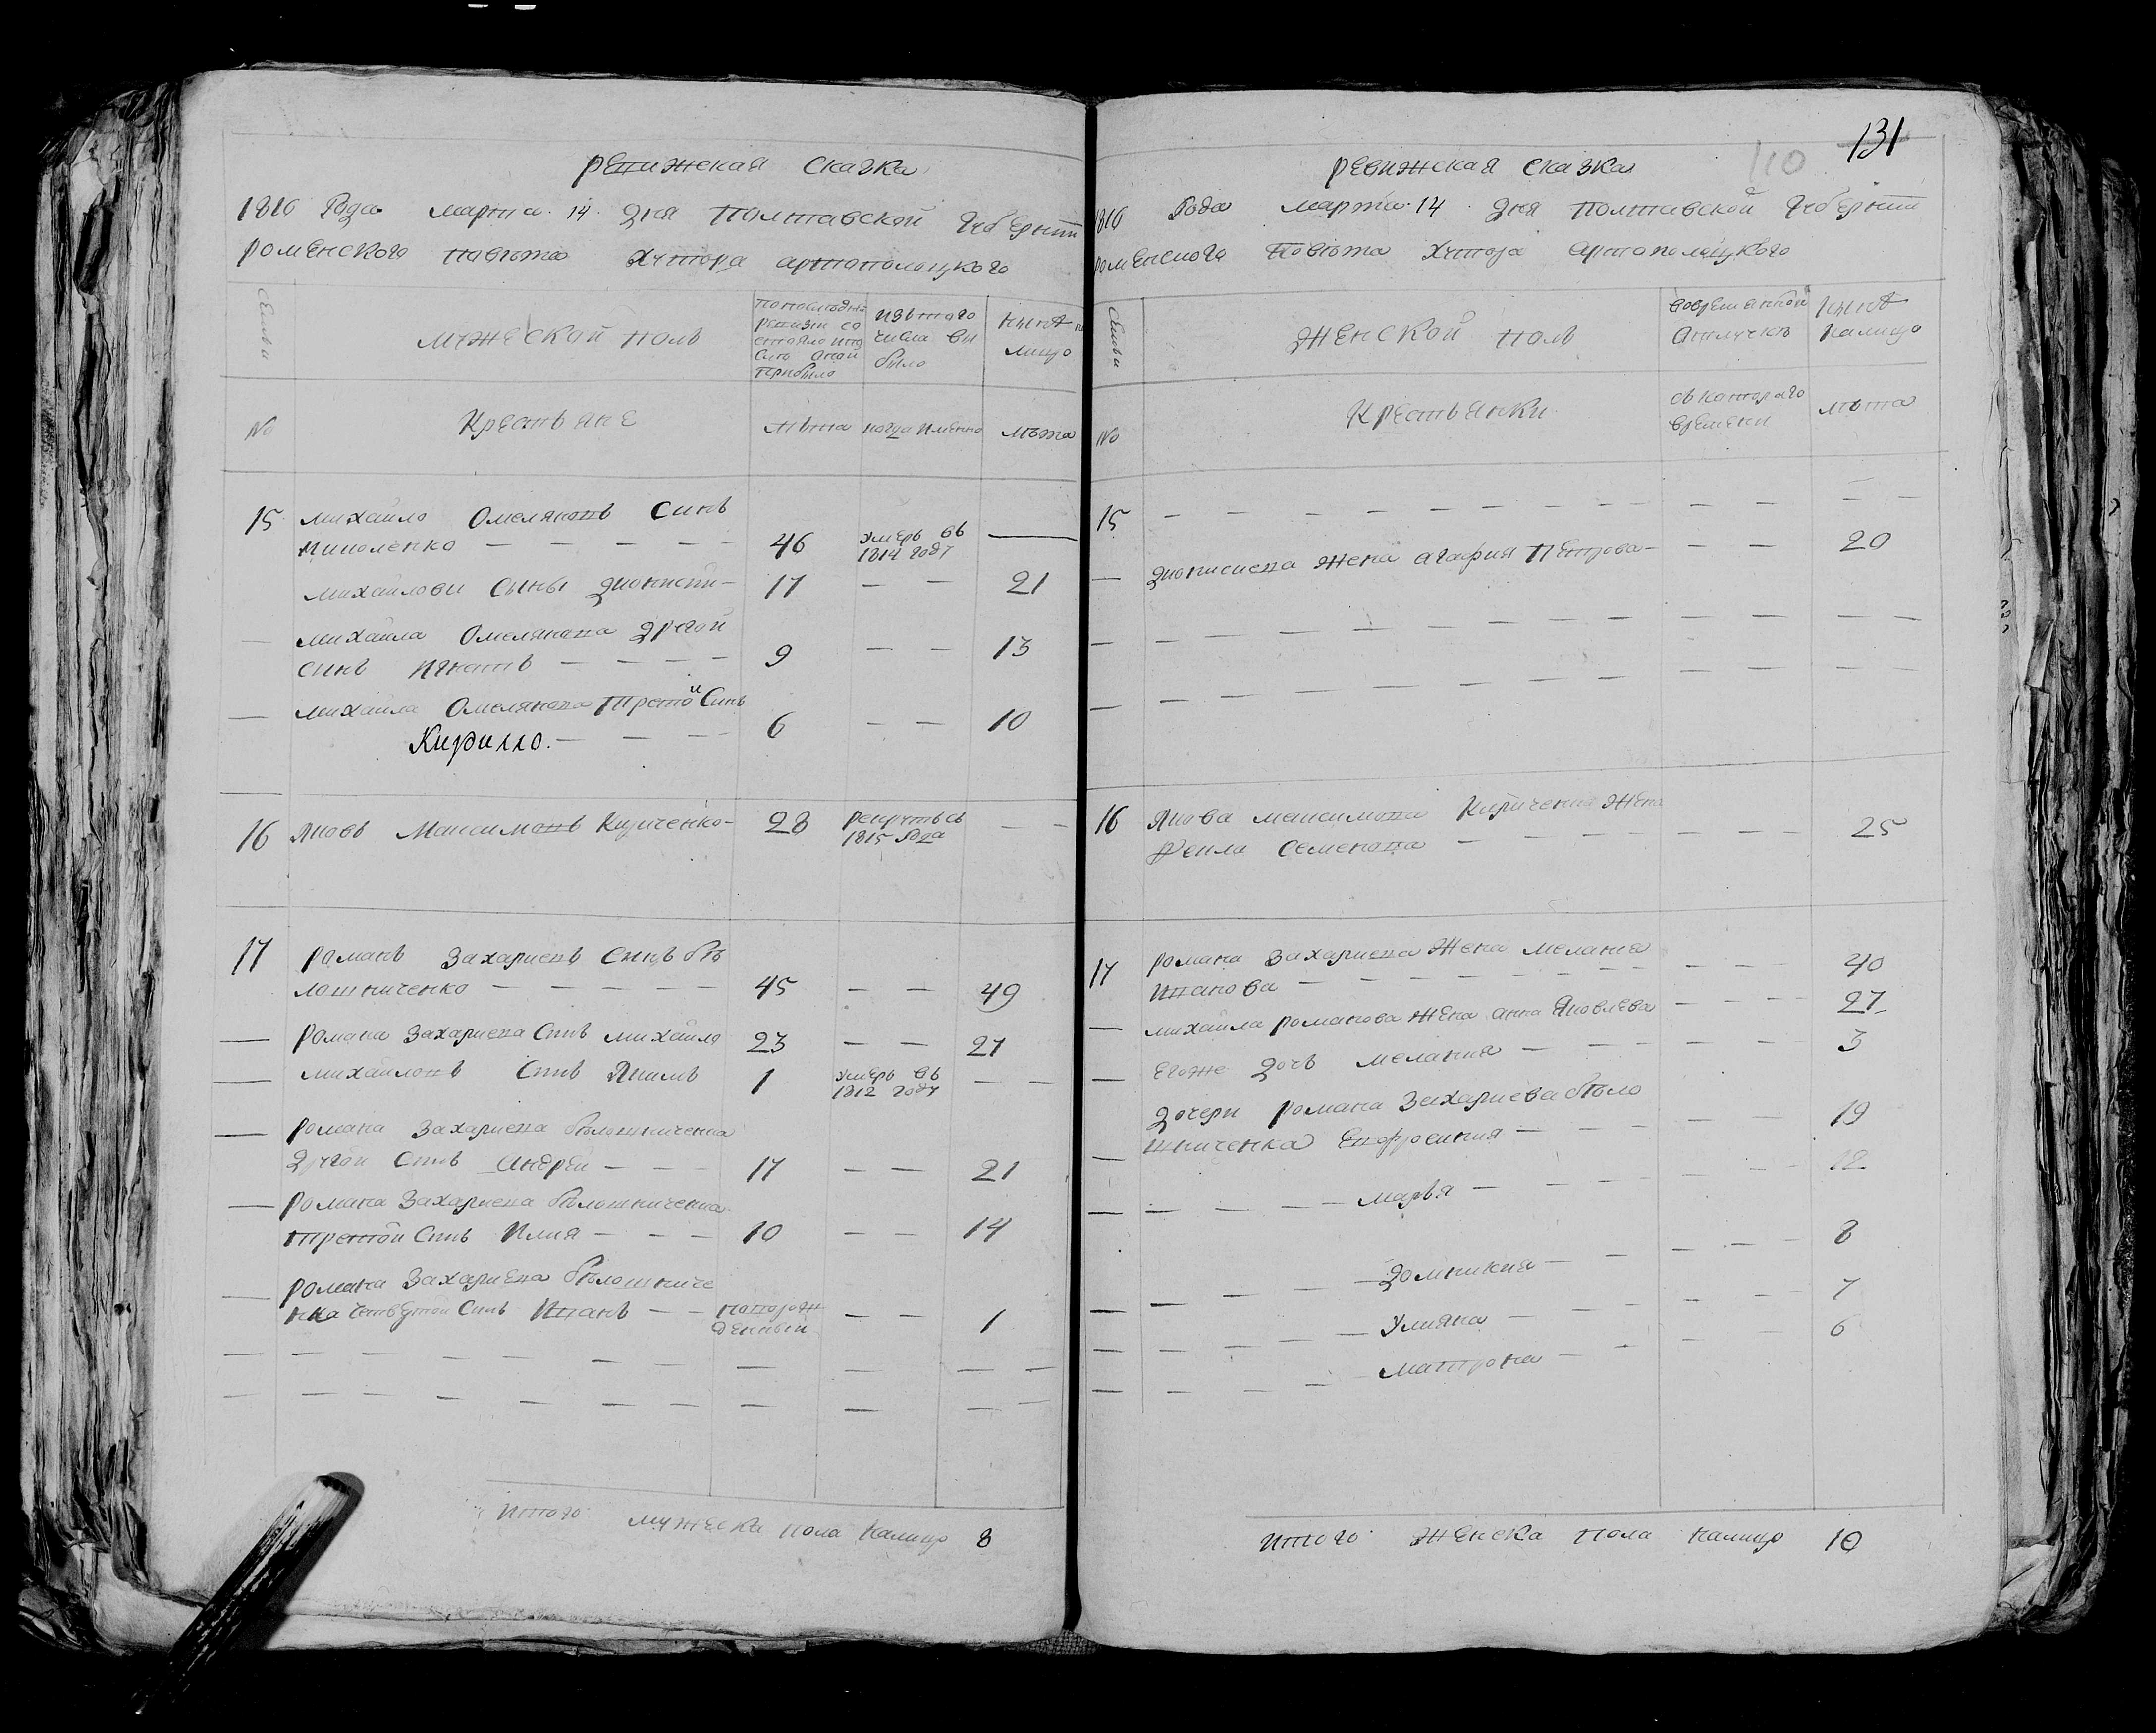 ревижская сказка
1816 Года марта 14 дня Полтавской Губернии
роменского повѣта Хутора артополоцкого
Семьи
мужеской полъ
по последней
ревизии со
стояло и по
слѣ оной
прибыло
изъ того
числа вы
было
нынѣ на
лицо
№
Крестьяне
лѣта
когда именно
лѣта
15 михайло Омеляновъ Синъ
Миколенко — — — — — 46 умеръ въ
1814 году —
михайлови сыны дионисий — 17 — — 21
— михайла Омелянова другой
синъ игнатъ — — — — 9 — — 13
— михайла Омелянова третой Синъ
Кирилло. — — — 6 — — 10
16 Яковъ Максимовъ Кириченко — 28 рекрутъ съ
1815 Года — —
17 романъ Захариевъ Синъ бѣ
лошниченко — — — — — 45 — — 49
— романа Захариева Синъ михайло 23 — — 27
— михайловъ Синъ Якимъ 1 умеръ въ
1812 году — —
— романа Захариева бѣлошниченка
другой Синъ Андрей — — — 17 — — 21
— романа Захариева бѣлошниченка
третой Синъ Илия — — — 10 — — 14
— романа Захариева бѣлошниче
нка четвертой Синъ Иванъ — — новорож
денный — — 1
Итого мужеска пола налицо 8
131
110
ревижская сказка
1816 Года марта 14 дня Полтавской Губернии
роменского Повѣта Хутора артополоцкого
Семьи
Женской полъ
во временной
отлучкѣ
нынѣ
налицо
№
Крестьянки
съ которого
времени
лѣта
15 — — — — — — — — —
— Дионисиева жена агафия Петрова — — — 20
16 Якова максимова Кириченка Жена
Фекла Семенова — — — — — — — 25
17 романа Захариева Жена мелания
Иванова — — — — — — — — — 40
— михайла романова Жена анна Яковлева — — — 27
— Егоже дочь мелания — — — — — 3
дочери романа Захариева бѣло
— шниченка Евфросиния — — — — 19
— — — — — марья — — — — 12
— — — — — домникия — — — — 8
— — — — — Улияна — — — — 7
— — — — — матрона — — — — 6
Итого Женска пола налицо 10